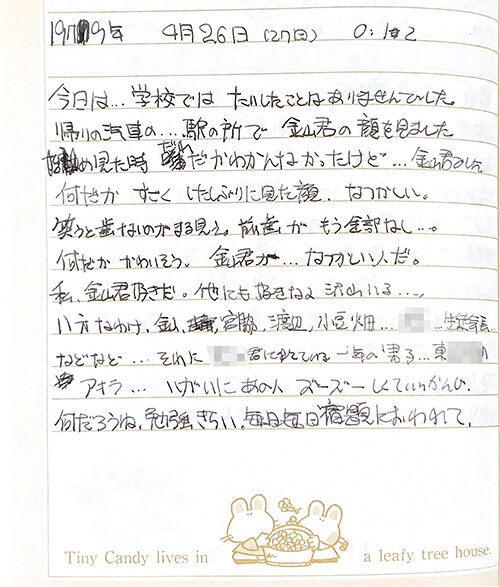 1979年 4月26日(27日) 0:12
今日は…学校では たいしたことはありませんでした。
帰りの汽車の…駅の所で 金山君の顔を見ました
め見た時 だれだかわかんなかったけど…金山君でした
何だか すごく ひしぶりに見た顔、なつかしい。
笑うと歯ないのがまる見え。前歯が もう全部なし…。
何だか かわいそう。金山君が…なつかしい人だ。
私、金山君好きだ。他にも好きな人 沢山いる…、
八方なわけ、金山、宮脇、渡辺、小豆畑… 生徒会長
などなど…それに 君に似ている一年の男子…東
アキラ… いがいにあの人 ズーズーしくていかんの、
何だろうね、勉強きらい、毎日毎日宿題におわれて、
Tiny Candy lives in a leafy tree house.